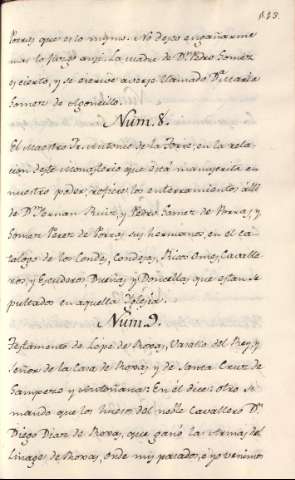 123.
Porras que es lo mismo. No dejos engañarme
mas la juzgo ansi. La madre de Dn. Pedro Gomez
es cierto, y se sirvio averse llamado Da. Maria
Gomez de
Num. 8.
El Maestro Fr. Antonio de la Torre, en la rela-
cion deste Monasterio que dejó manuscrita en
nuestro poder, refiere los enterramientos alli
de Dn. Fernan Ruiz, y Pedro Gomez de Porras, y
Gomez Perez de Porras sus hermanos, en el ca-
talogo de los Condes, Condesas, Ricos Omes, Cavalle-
ros y Escuderos Dueñas y Doncellas que estan se-
pultados en aquella Yglesia.
Num. 9.
Testamento de Lope de Roxas, Vasallo del Rey, y
Señor de la Casa de Roxas y de Santa Cruz de
y Antoñana: En el dice: otro si
mando que los huesos del noble Cavallero Dn.
Diego Diaz de Roxas, que ganó las Armas del
Linage de Roxas, onde mis pasados, e yo venimos